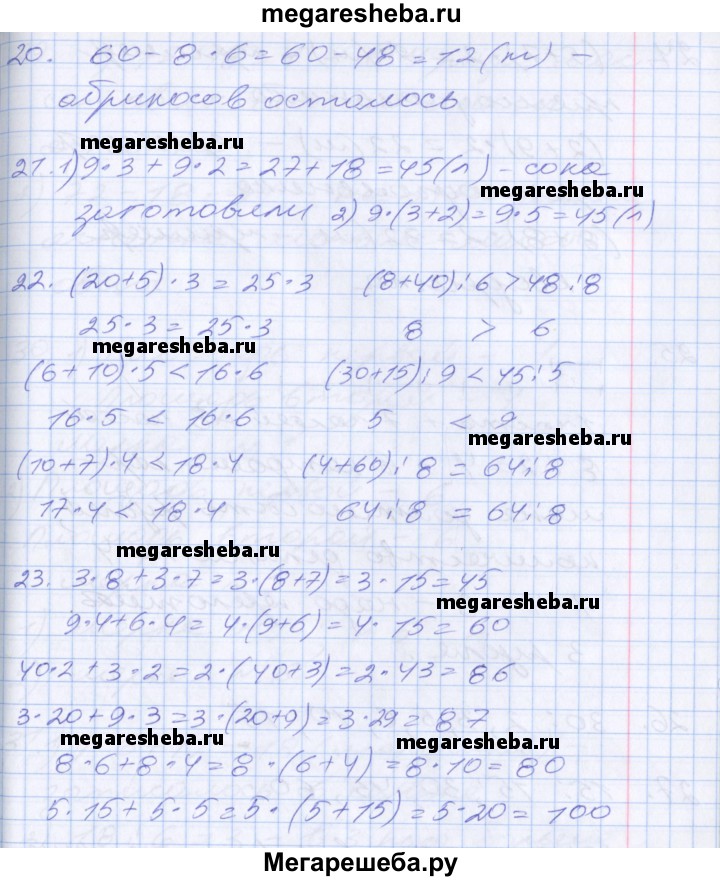 megaresheba.ru
20. 60 - 8 · 6 = 60 - 48 = 12 (т) -
абрикосов осталось
megaresheba.ru
21. 1) 9 · 3 + 9 · 2 = 27 + 18 = 45 (л) - сока
megaresheba.ru
заготовили 2) 9 · (3+2) = 9 · 5 = 45 (л)
22. (20+5) · 3 = 25 · 3 (8+40) : 6 > 48 : 8
25 · 3 = 25 · 3 8 > 6
megaresheba.ru
(6+10) · 5 < 16 · 6 (30+15) : 9 < 45 : 5
16 · 5 < 16 · 6 5 < 9
megaresheba.ru
(10+7) · 4 < 18 · 4 (4+60) : 8 = 64 : 8
17 · 4 < 18 · 4 64 : 8 = 64 : 8
megaresheba.ru
23. 3 · 8 + 3 · 7 = 3 · (8+7) = 3 · 15 = 45
megaresheba.ru
9 · 4 + 6 · 4 = 4 · (9+6) = 4 · 15 = 60
40 · 2 + 3 · 2 = 2 · (40+3) = 2 · 43 = 86
3 · 20 + 9 · 3 = 3 · (20+9) = 3 · 29 = 87
megaresheba.ru megaresheba.ru
8 · 6 + 8 · 4 = 8 · (6+4) = 8 · 10 = 80
5 · 15 + 5 · 5 = 5 · (5+15) = 5 · 20 = 100
Мегарешеба.ру